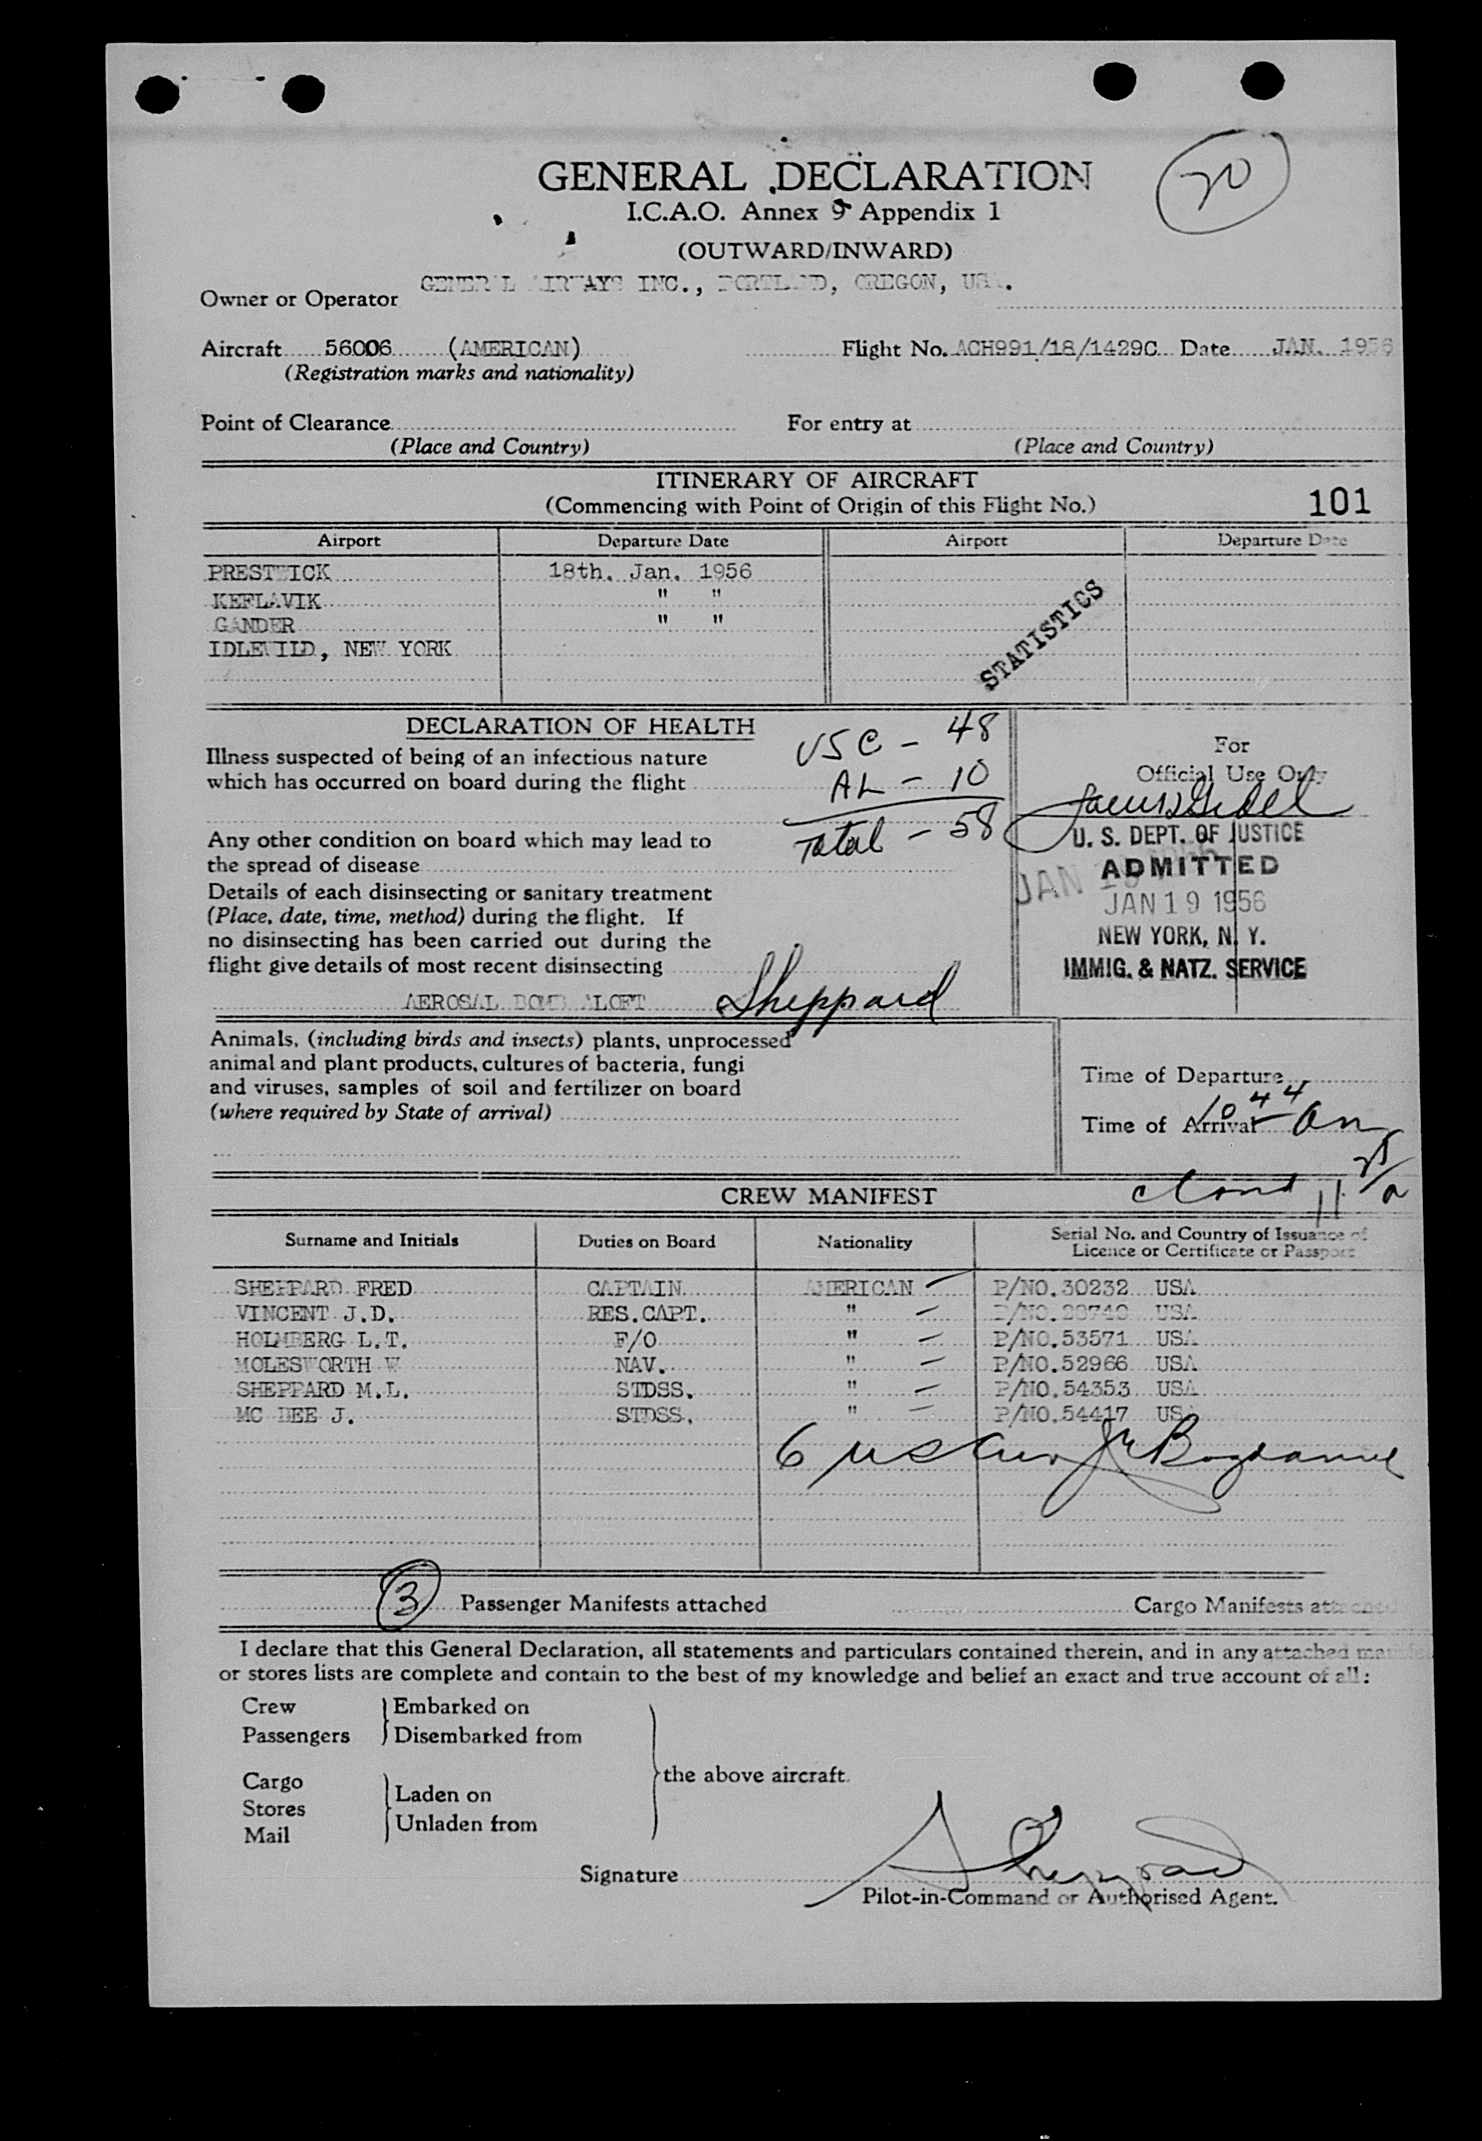 20
GENERAL DECLARATION
I.C.A.O. Annex 9 Appendix 1
(OUTWARD/INWARD)
Owner or Operator GENERAL AIRWAYS INC., PORTLAND, OREGON, USA.
Aircraft 56006 (AMERICAN) Flight No. ACH991/18/1429C Date JAN. 1956
(Registration marks and nationality)
Point of Clearance For entry at
(Place and Country) (Place and Country)
ITINERARY OF AIRCRAFT
(Commencing with Point of Origin of this Flight No.) 101
Airport Departure Date Airport Departure Date
PRESTWICK 18th. Jan. 1956
KEFLAVIK " "
GANDER " "
IDLEWILD, NEW YORK
STATISTICS
DECLARATION OF HEALTH
Illness suspected of being of an infectious nature
which has occurred on board during the flight
USC - 48
AL - 10
Total - 58
Any other condition on board which may lead to
the spread of disease
Details of each disinsecting or sanitary treatment
(Place, date, time, method) during the flight. If
no disinsecting has been carried out during the
flight give details of most recent disinsecting
AEROSAL BOMB ALOFT Sheppard
For
Official Use Only
U. S. DEPT. OF JUSTICE
ADMITTED
JAN 19 1956
NEW YORK, N. Y.
IMMIG. & NATZ. SERVICE
JAN
Animals, (including birds and insects) plants, unprocessed
animal and plant products, cultures of bacteria, fungi
and viruses, samples of soil and fertilizer on board
(where required by State of arrival)
Time of Departure
Time of Arrival 1044 am
CREW MANIFEST
Surname and Initials Duties on Board Nationality Serial No. and Country of Issuance of
Licence or Certificate or Passport
SHEPPARD FRED CAPTAIN AMERICAN P/NO.30232 USA
VINCENT J.D. RES.CAPT. " P/NO.28740 USA
HOLMBERG L.T. F/O " P/NO.53571 USA
MOLESWORTH W NAV. " P/NO.52966 USA
SHEPPARD M.L. STDSS. " P/NO.54353 USA
MC BEE J. STDSS. " P/NO.54417 USA
6 us
3 Passenger Manifests attached Cargo Manifests attached
I declare that this General Declaration, all statements and particulars contained therein, and in any attached
or stores lists are complete and contain to the best of my knowledge and belief an exact and true account of all:
Crew Embarked on
Passengers Disembarked from
the above aircraft.
Cargo Laden on
Stores Unladen from
Mail
Signature Sheppard
Pilot-in-Command or Authorised Agent.